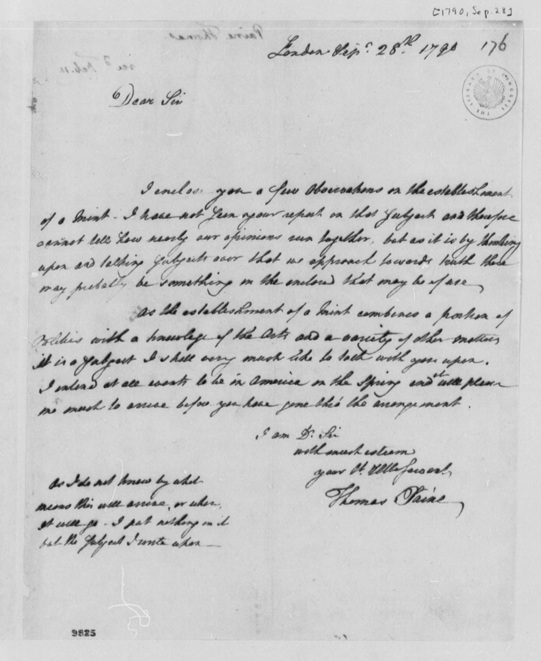 [1790, Sep. 28]
Paine Thomas
London Sepr. 28th. 1790
176
Dear Sir
I enclose you a few Observations on the establishment
of a Mint. I have not seen your report on that Subject and therefore
cannot tell how nearly our opinions run together, but as it is by thinking
upon and talking Subjects over that we approach towards truth there
may probably be something in the enclosed that may be of use.
As the establishment of a Mint combines a portion of
Politics with a knowledge of the Arts and a variety of other matters
it is a Subject I shall very much like to talk with you upon.
I intend at all events to be in America in the Spring and it will please
me much to arrive before you have gone thro' the arrangement.
I am Dr. Sir
with much esteem
your Ob. Servant
Thomas Paine
As I do not know by what
means this will arrive, or when
it will go. I put nothing in it
but the Subject I write upon
9825